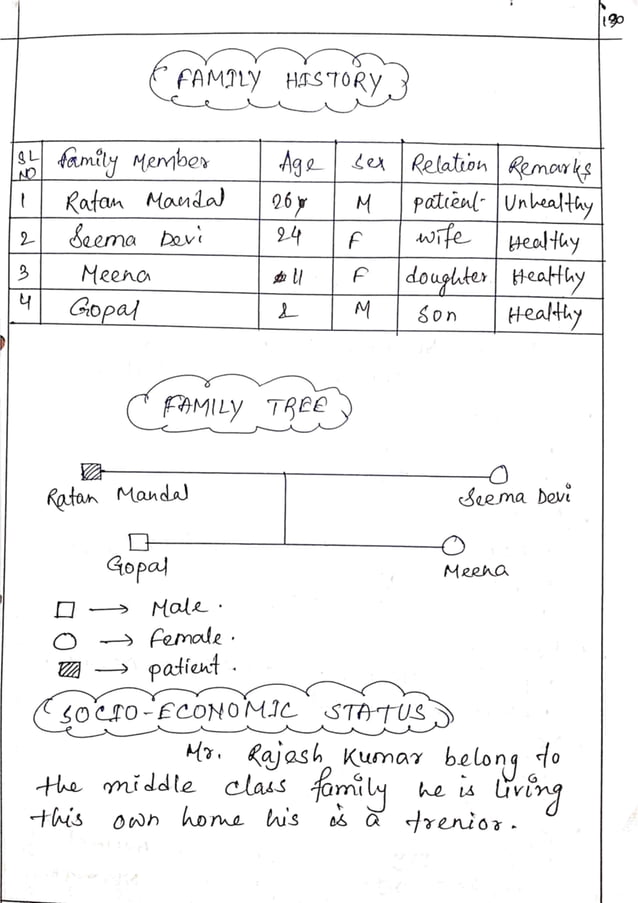 190
FAMILY HISTORY
SL NO Family Member Age Sex Relation Remarks
1 Ratan Mandal 26 M patient Unhealthy
2 Seema Devi 24 F wife Healthy
3 Meena 11 F doughter Healthy
4 Gopal 2 M Son Healthy
FAMILY TREE
Ratan Mandal Seema Devi
Gopal Meena
□ → Male.
○ → Female.
▨ → patient.
SOCIO-ECONOMIC STATUS
Mr. Rajesh Kumar belong to
the middle class family he is living
this own home his is a trenior.